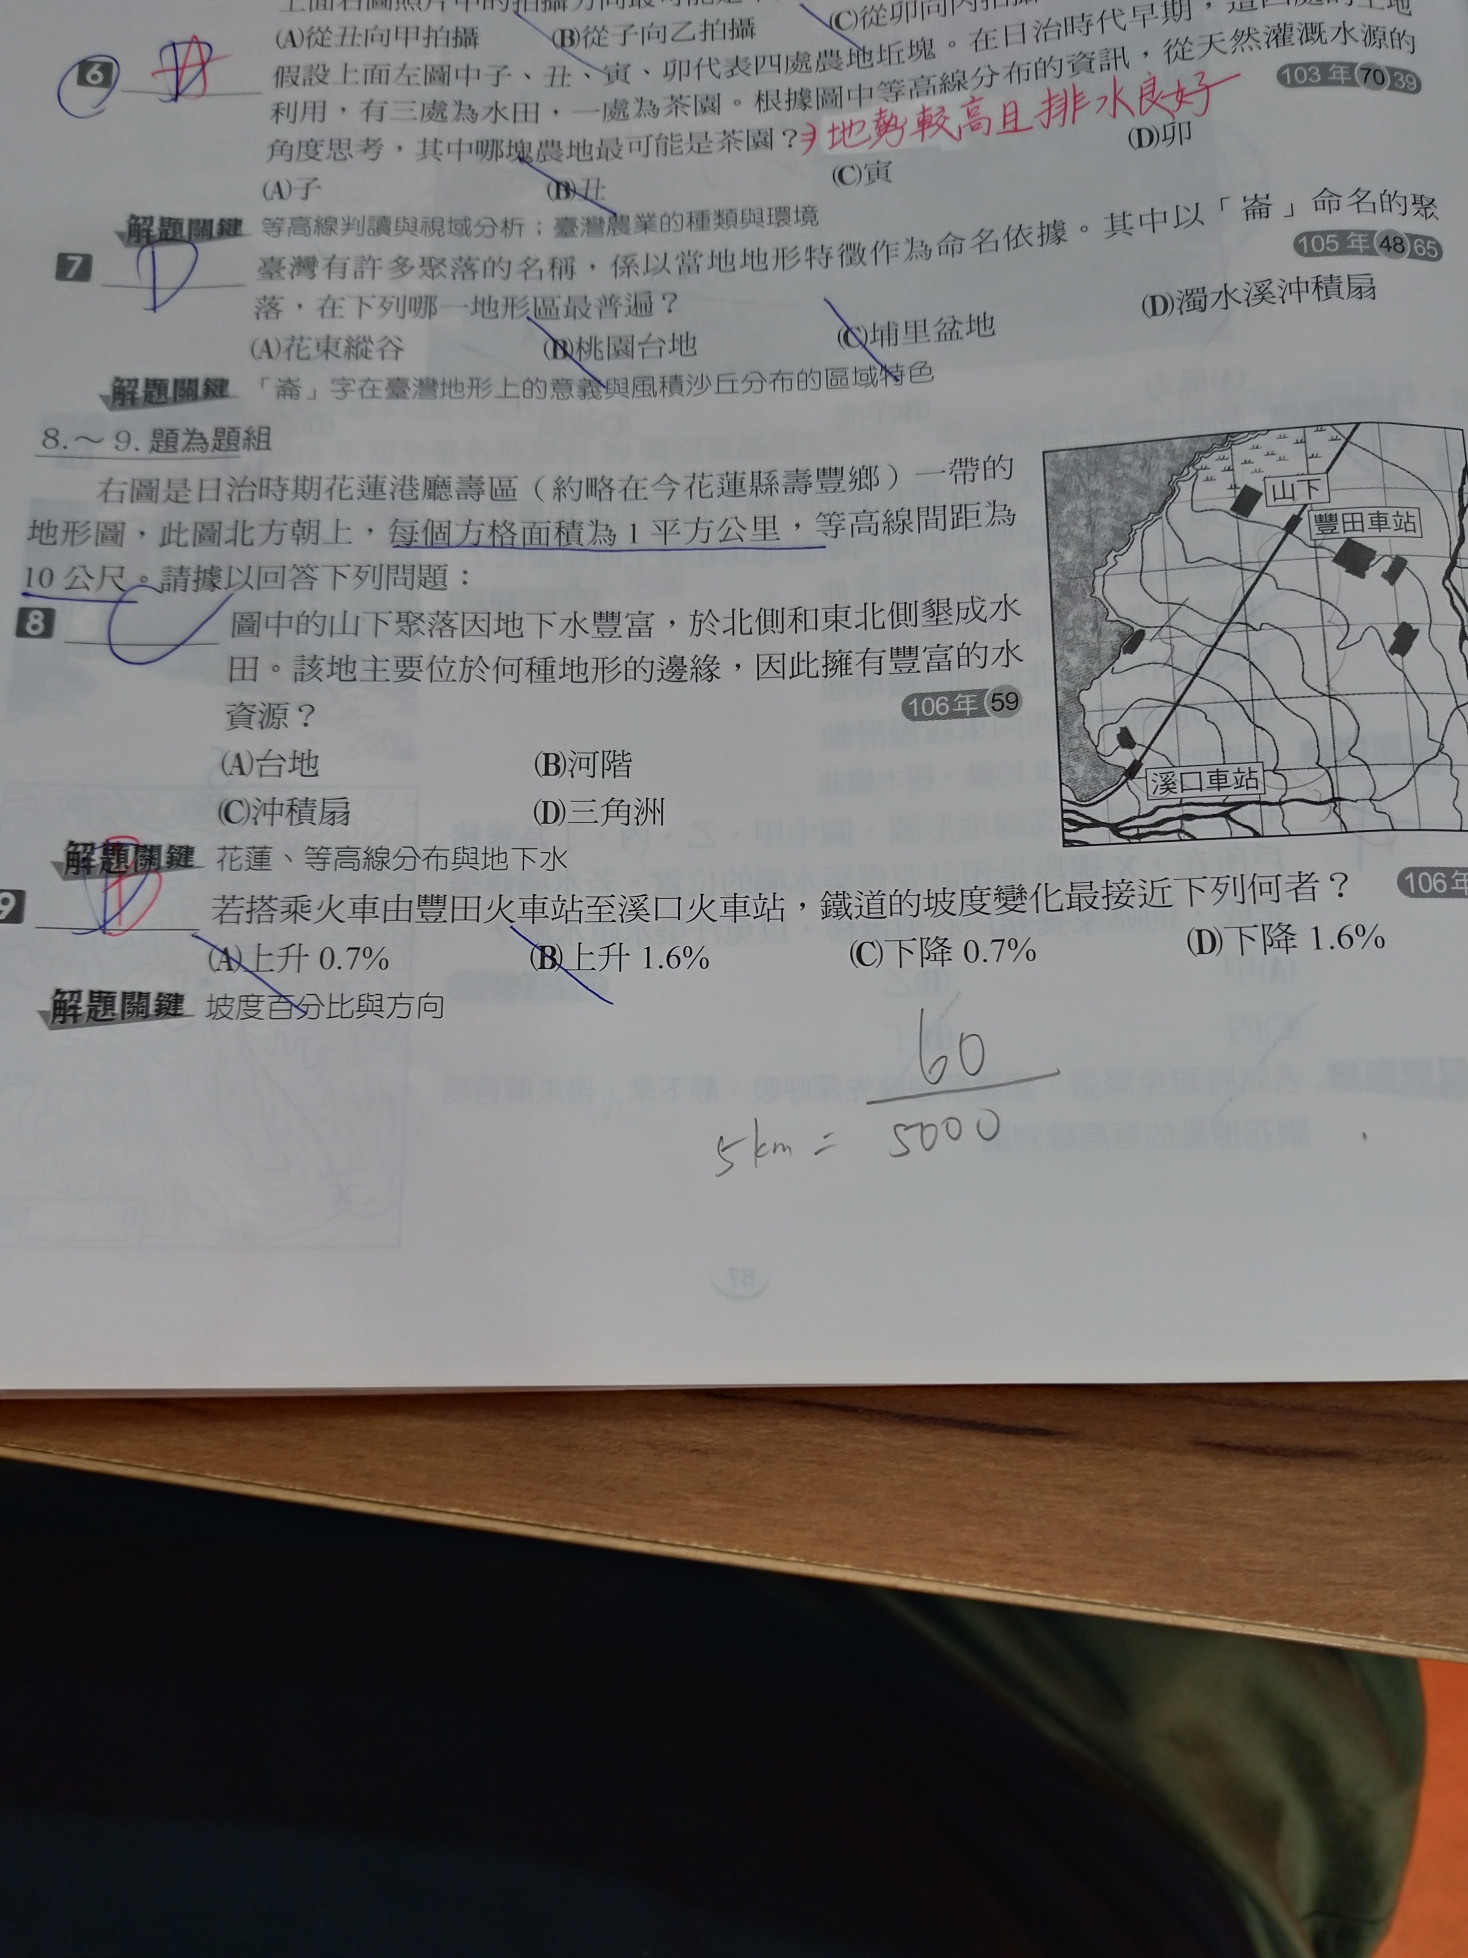 (A)從丑向甲拍攝 (B)從子向乙拍攝
6 A 假設上面左圖中子、丑、寅、卯代表四處農地坵塊。在日治時代早期,這四處的土地
利用,有三處為水田,一處為茶園。根據圖中等高線分布的資訊,從天然灌溉水源的
角度思考,其中哪塊農地最可能是茶園? 地勢較高且排水良好 103年 70 39
(A)子 (B)丑 (C)寅 (D)卯
解題關鍵 等高線判讀與視域分析;臺灣農業的種類與環境
7 D 臺灣有許多聚落的名稱,係以當地地形特徵作為命名依據。其中以「崙」命名的聚
落,在下列哪一地形區最普遍? 105年 48 65
(A)花東縱谷 (B)桃園台地 (C)埔里盆地 (D)濁水溪沖積扇
解題關鍵 「崙」字在臺灣地形上的意義與風積沙丘分布的區域特色
8.~9.題為題組
右圖是日治時期花蓮港廳壽區(約略在今花蓮縣壽豐鄉)一帶的
地形圖,此圖北方朝上,每個方格面積為1平方公里,等高線間距為
10公尺。請據以回答下列問題:
8 C 圖中的山下聚落因地下水豐富,於北側和東北側墾成水
田。該地主要位於何種地形的邊緣,因此擁有豐富的水
資源? 106年 59
(A)台地 (B)河階
(C)沖積扇 (D)三角洲
解題關鍵 花蓮、等高線分布與地下水
山下
豐田車站
溪口車站
9 若搭乘火車由豐田火車站至溪口火車站,鐵道的坡度變化最接近下列何者? 106年
(A)上升 0.7% (B)上升 1.6% (C)下降 0.7% (D)下降 1.6%
解題關鍵 坡度百分比與方向
60
5km = 5000